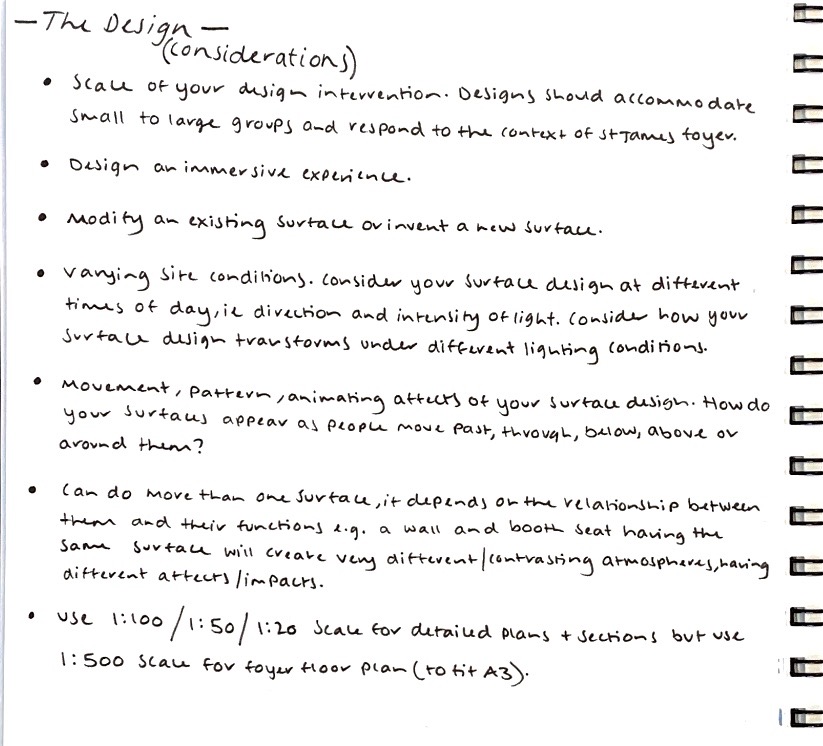 — The Design —
(considerations)
• Scale of your design intervention. Designs should accommodate
small to large groups and respond to the context of St James foyer.
• Design an immersive experience.
• Modify an existing surface or invent a new surface.
• Varying site conditions. Consider your surface design at different
times of day, ie direction and intensity of light. Consider how your
surface design transforms under different lighting conditions.
• Movement, pattern, animating affects of your surface design. How do
your surfaces appear as people move past, through, below, above or
around them?
• Can do more than one surface, it depends on the relationship between
them and their functions e.g. a wall and booth seat having the
same surface will create very different/contrasting atmospheres, having
different affects/impacts.
• Use 1:100 / 1:50 / 1:20 scale for detailed plans + sections but use
1:500 scale for foyer floor plan (to fit A3).